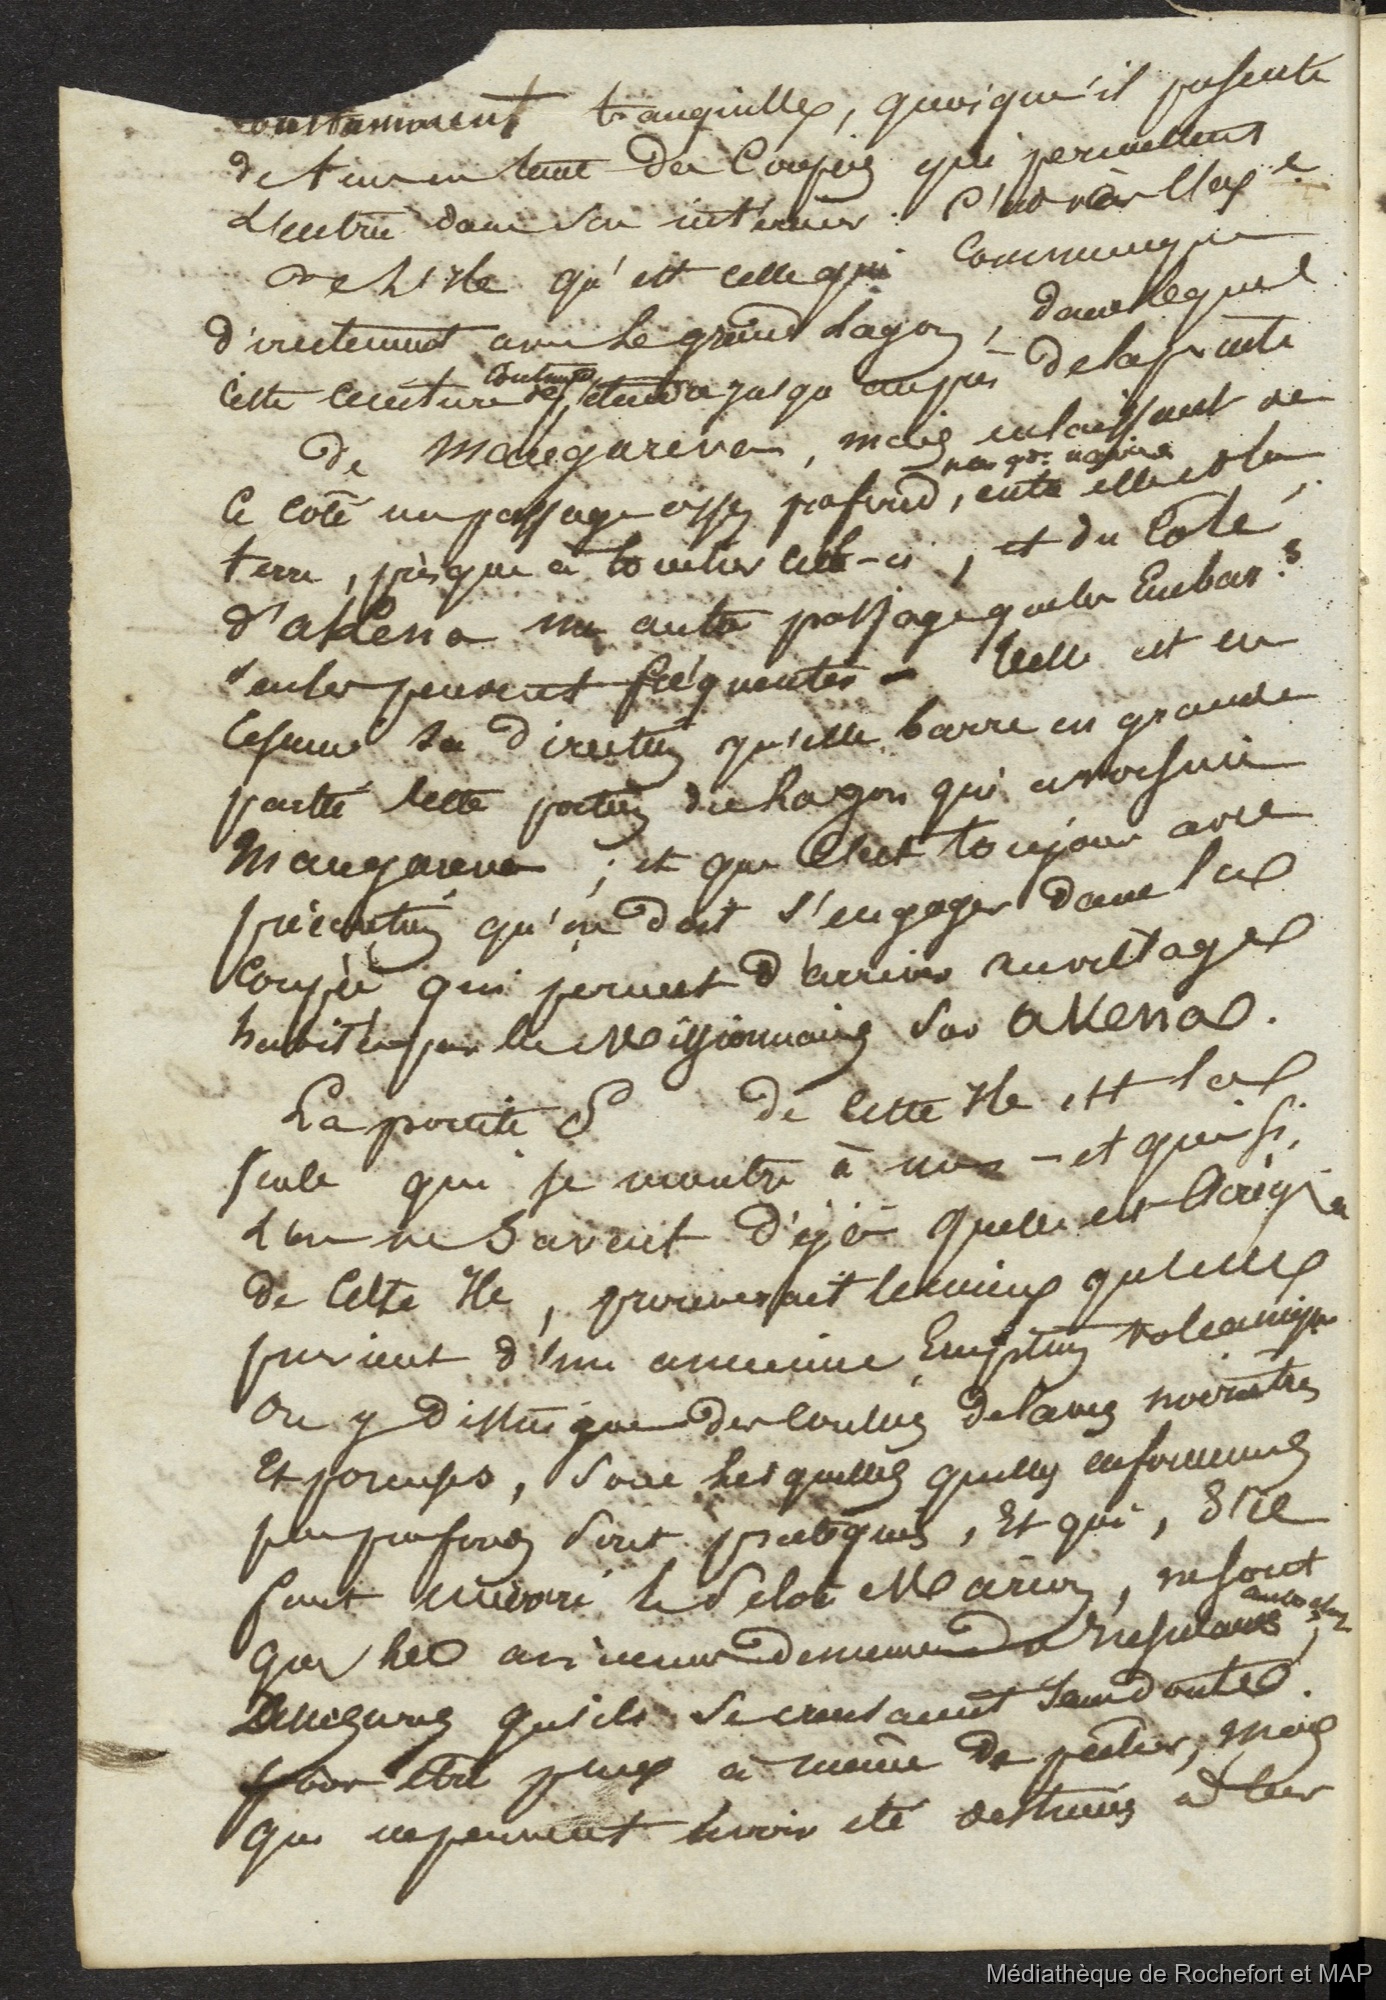 constamment tranquille, quoiqu'il présente
de tems en tems des coupées qui permettent
d'entrer dans son intérieur. C'est vers l'Exp
de l'Ile qu'est celle qui communique
directement avec le grand Lagon, dans lequel
cette ceinture continue jusqu'auprès de la pointe
de Mangareva, mais en laissant de
ce côté un passage assez profond, pour gds navires entre elle et la
terre, presque à toucher celle-ci, et du côté
d'akena un autre passage que les Embar.s
seules peuvent fréquenter - Telle est en
résumé sa direction qu'elle barre en grande
partie cette portion du Lagon qui avoisine
Mangareva ; et que c'est toujours avec
précaution qu'on doit s'engager dans la
coupée qui permet d'arriver au village
habité par les Missionnaires sur aKena.
La pointe S de cette Ile est la
seule qui se montre à nu - et qui si,
l'on ne savait déjà quelle est l'origine
de cette Ile, prouverait le mieux qu'elle
provient d'une ancienne Eruption volcanique
On y distingue des coulées de laves noirâtres
et poreuses, dans lesquelles quelques enfoncemens
peu profonds sont pratiqués, Et qui,
sont suivant le Pilote Marion, ne sont
que les anciennes demeures des Insulaires
qu'ils se creusaient sans doute
pour être plus à même de pêcher, mais
qui ne peuvent avoir été destinées à leur
Médiathèque de Rochefort et MAP